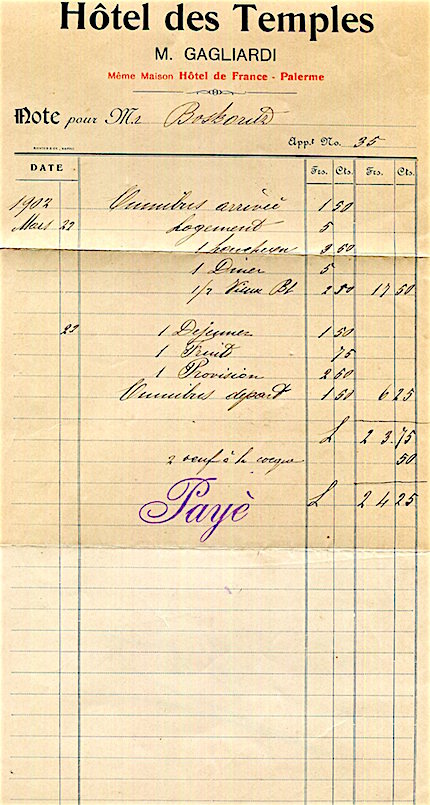 Hôtel des Temples
M. GAGLIARDI
Même Maison Hôtel de France - Palerme
Note pour Mr
Appt. No. 35
DATE Frs. Cts. Frs. Cts.
1902 Omnibus arrivée 1 50
Mars 22 Logement 5
1 Luncheon 3 50
1 Diner 5
1/2 Vieux Bt 2 50 17 50
23 1 Dejeuner 1 50
1 Fruit 75
1 Provision 2 50
Omnibus depart 1 50 6 25
L 2 3.75
2 oeuf à la coque 50
Payè L 2 4 25